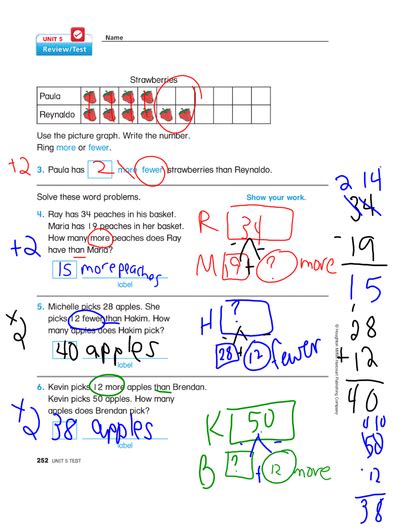 UNIT 5
Review/Test
Name
Strawberries
Paula
Reynaldo
Use the picture graph. Write the number.
Ring more or fewer.
+2
3. Paula has 2 more fewer strawberries than Reynaldo.
Solve these word problems.
Show your work.
4. Ray has 34 peaches in his basket.
Maria has 19 peaches in her basket.
How many more peaches does Ray
have than Maria?
+2
15 more peaches
label
R 34
- -
M 19 + ? more
2 14
34
- 19
15
5. Michelle picks 28 apples. She
picks 12 fewer than Hakim. How
many apples does Hakim pick?
+2
40 apples
label
H ?
28 + 12 fewer
1
28
+ 12
40
6. Kevin picks 12 more apples than Brendan.
Kevin picks 50 apples. How many
apples does Brendan pick?
+2
38 apples
label
K 50
B ? + 12 more
4 10
50
- 12
38
252 UNIT 5 TEST
© Houghton Mifflin Harcourt Publishing Company